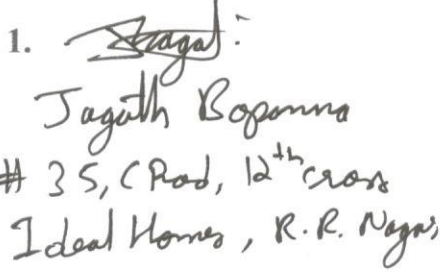 1.
Jagath Bopanna
# 35, C Road, 12th cross
Ideal Homes, R.R. Nagar,